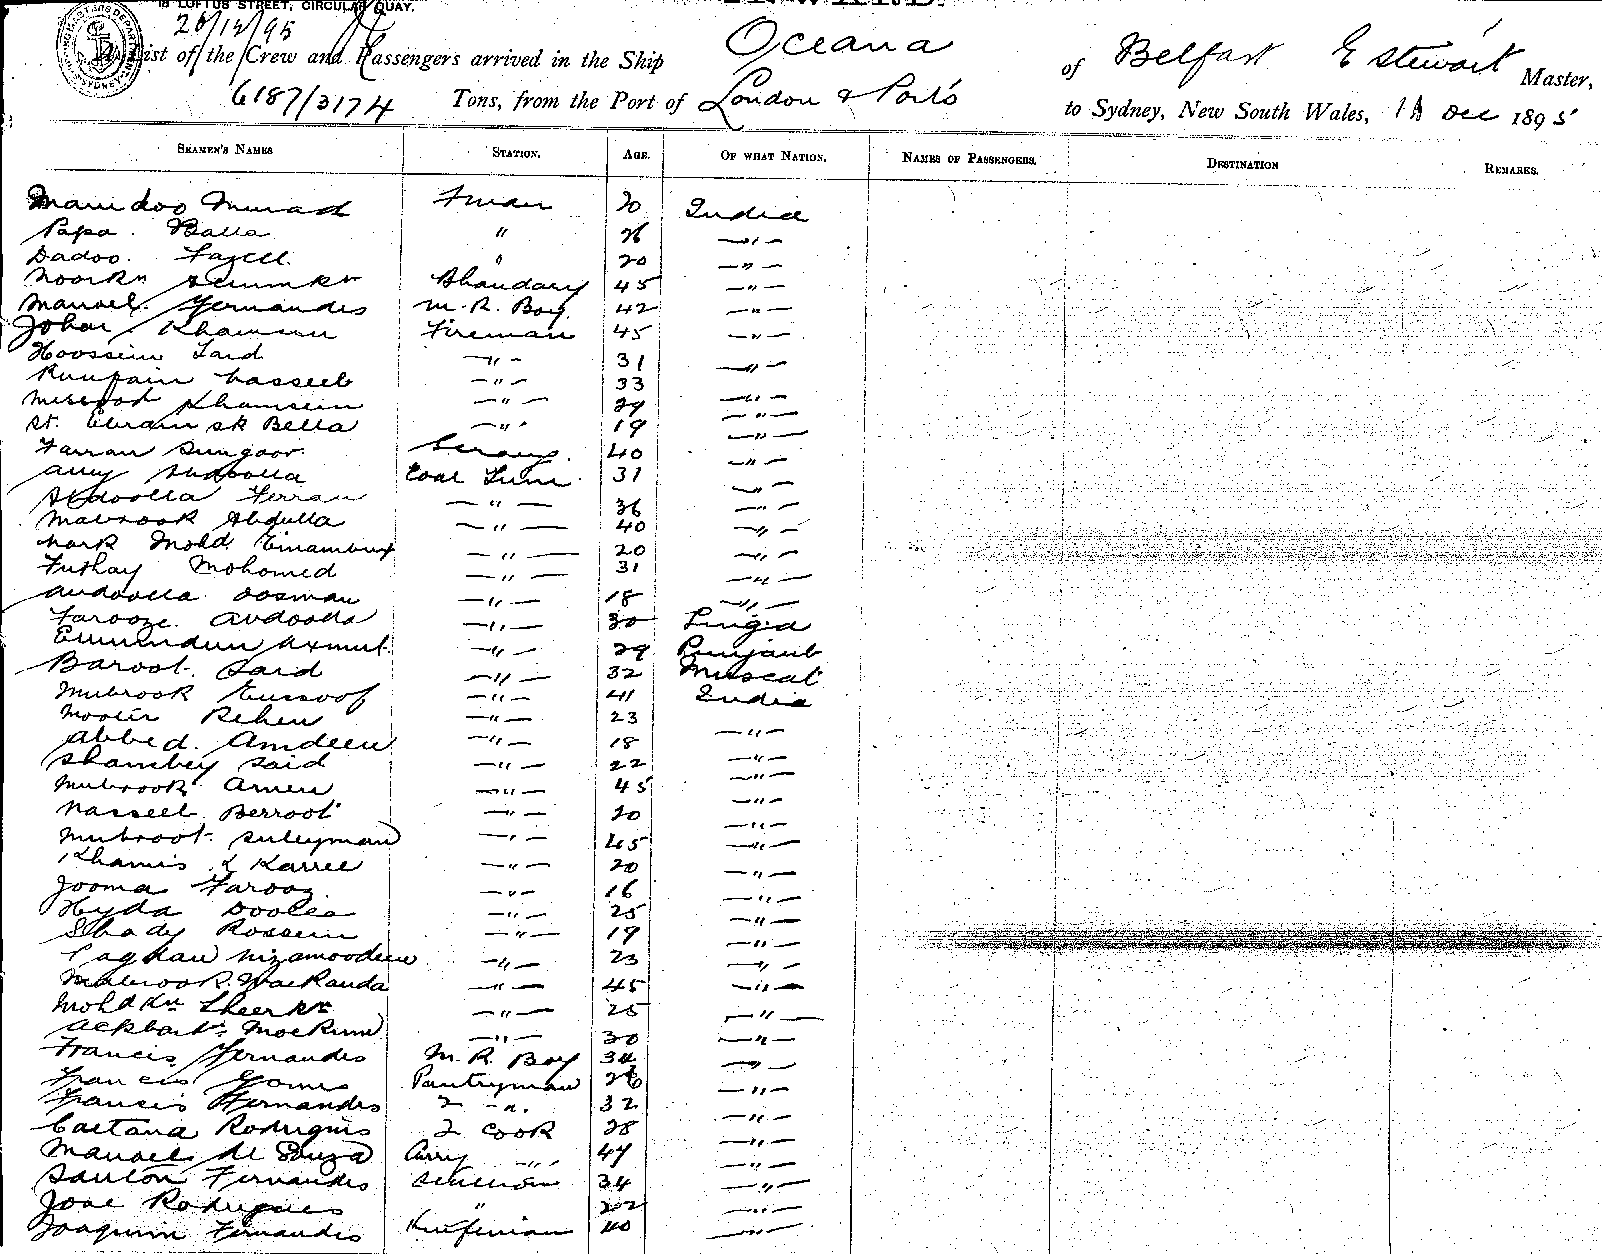 18 LOFTUS STREET, CIRCULAR QUAY.
26/12/95
A List of the Crew and Passengers arrived in the Ship Oceana of Belfast E Stewart Master,
6187/3174 Tons, from the Port of London & Ports to Sydney, New South Wales, Dec 1895
SEAMEN'S NAMES STATION. AGE. OF WHAT NATION. NAMES OF PASSENGERS. DESTINATION REMARKS.
Murad 20 India
Papa Balla " 26 —"—
Dadoo. Fazell " 20 —"—
Bhandary 45 —"—
Manoel Fernandes M. R. Boy. 42 —"—
Johar Khamison Fireman 45 —"—
Hoossein Said —"— 31 —"—
Nasseeb —"— 33 —"—
Khamsein —"— 29 —"—
St. Ebram sk Bella —"— 19 —"—
Farran Sungoor Serang. 40 —"—
Ally Abdoolla Coal Trim 31 —"—
Abdoolla Ferran —"— 36 —"—
Mabrook Abdulla —"— 40 —"—
Mohd. —"— 20 —"—
Futhay Mohomed —"— 31 —"—
Audoolla Oosman —"— 18 —"—
Farooze Avdoola —"— 30 Linga
—"— 29 Punjaub
Baroot. Said —"— 32 Muscat
Mubrook Eussoof —"— 41 India
Rehen —"— 23 —"—
Abbed. Amdeen —"— 18 —"—
Shambey Said —"— 22 —"—
Mubrook Amen —"— 45 —"—
Nasseeb Berroot —"— 20 —"—
Mubroot Suleyman —"— 45 —"—
Khamis & Karree —"— 20 —"—
Jooma Farooz —"— 16 —"—
Hyda Doolea —"— 25 —"—
Shady Rossein —"— 19 —"—
Nizamoodeen —"— 23 —"—
Mubrook Mackanda —"— 45 —"—
Mohd Kn Sheer Kn —"— 25 —"—
Ackbar Mockim —"— 30 —"—
Francis Fernandes M. R. Boy 34 —"—
Francis Gomes Pantryman 26 —"—
Francis Fernandes 2 -"- 32 —"—
Caetana Rodrigues 2 Cook 28 —"—
Manoel de Souza —"— —"—
Santon Fernandes Scullion 34 —"—
Jose Rodrigues " 22 —"—
Joaquim Fernandes 40 —"—